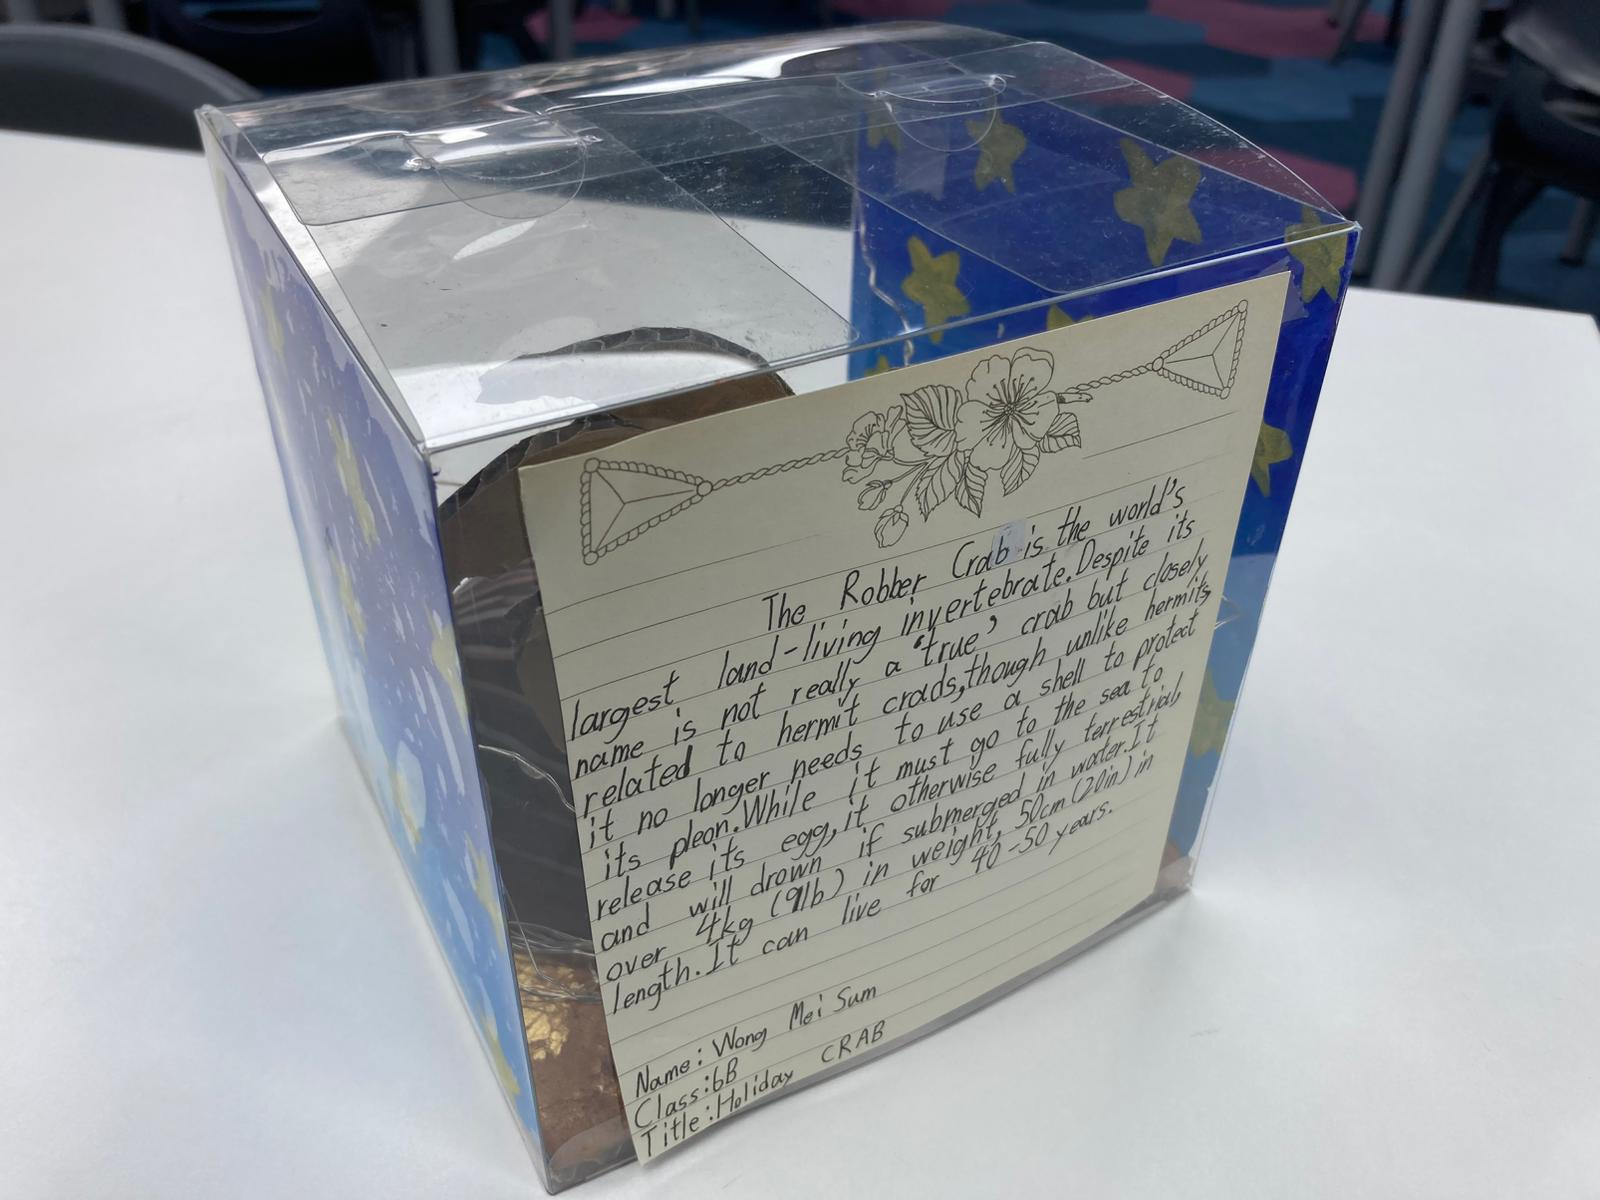 The Robber Crab is the world's
largest land-living invertebrate. Despite its
name is not really a 'true' crab but closely
related to hermit crads, though unlike hermits
it no longer needs to use a shell to protect
its pleon. While it must go to the sea to
release its egg, it otherwise fully terrestrial,
and will drown if submerged in water. It
over 4kg (9lb) in weight, 50cm (20in) in
length. It can live for 40-50 years.
Name: Wong Mei Sum
Class: 6B
Title: Holiday CRAB